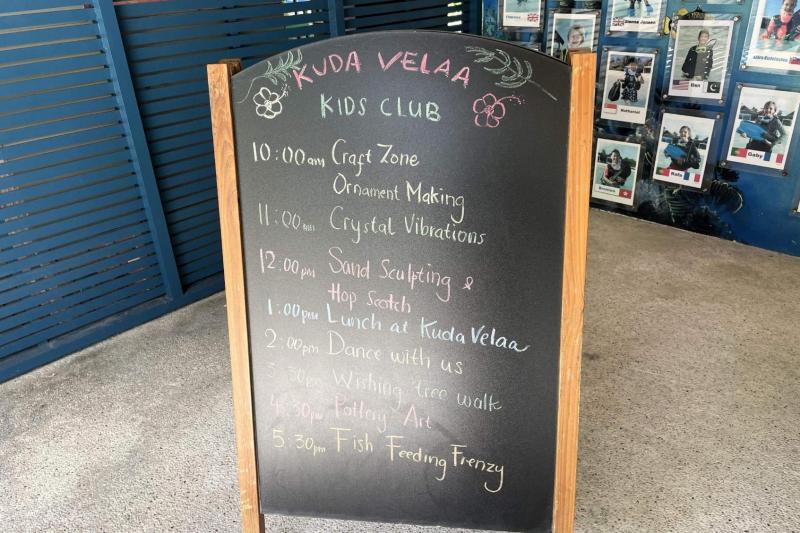 KUDA VELAA
KIDS CLUB
10:00am Craft Zone
Ornament Making
11:00am Crystal Vibrations
12:00pm Sand Sculpting &
Hop Scotch
1:00pm Lunch at Kuda Velaa
2:00pm Dance with us
3:30pm Wishing tree walk
4:30pm Pottery Art
5:30pm Fish Feeding Frenzy
Ben
Nathaniel
Gaby
Kafa